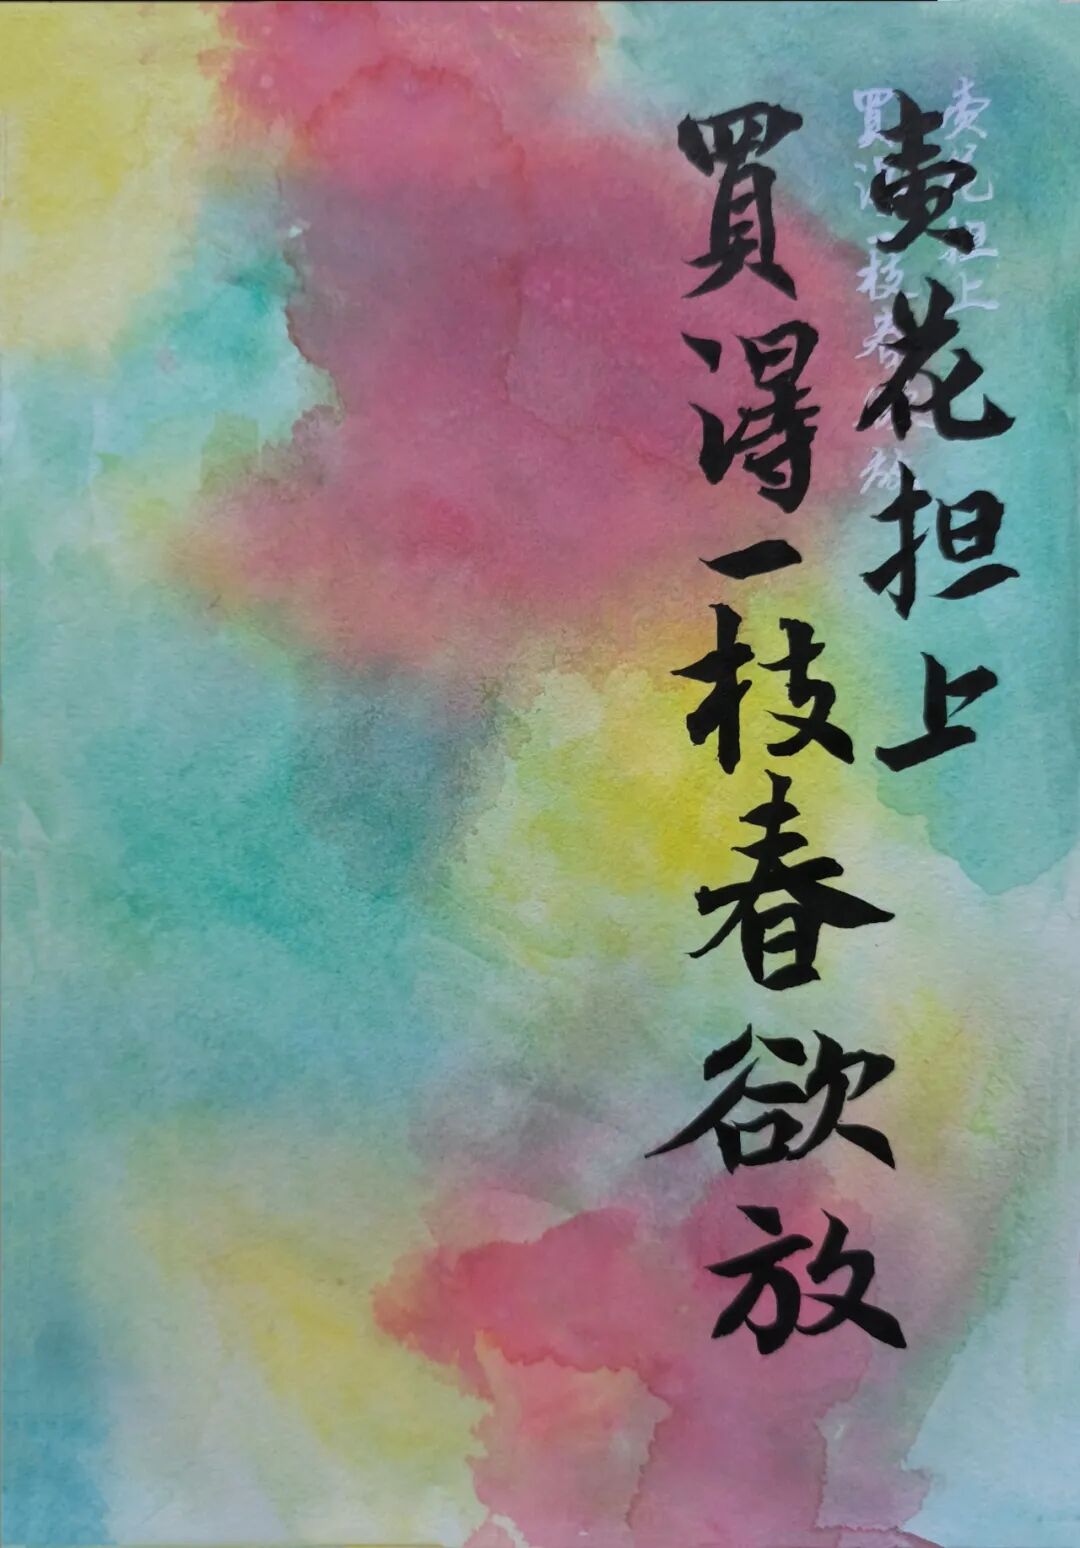 卖花担上
買得一枝春欲放
卖花担上
買得一枝春